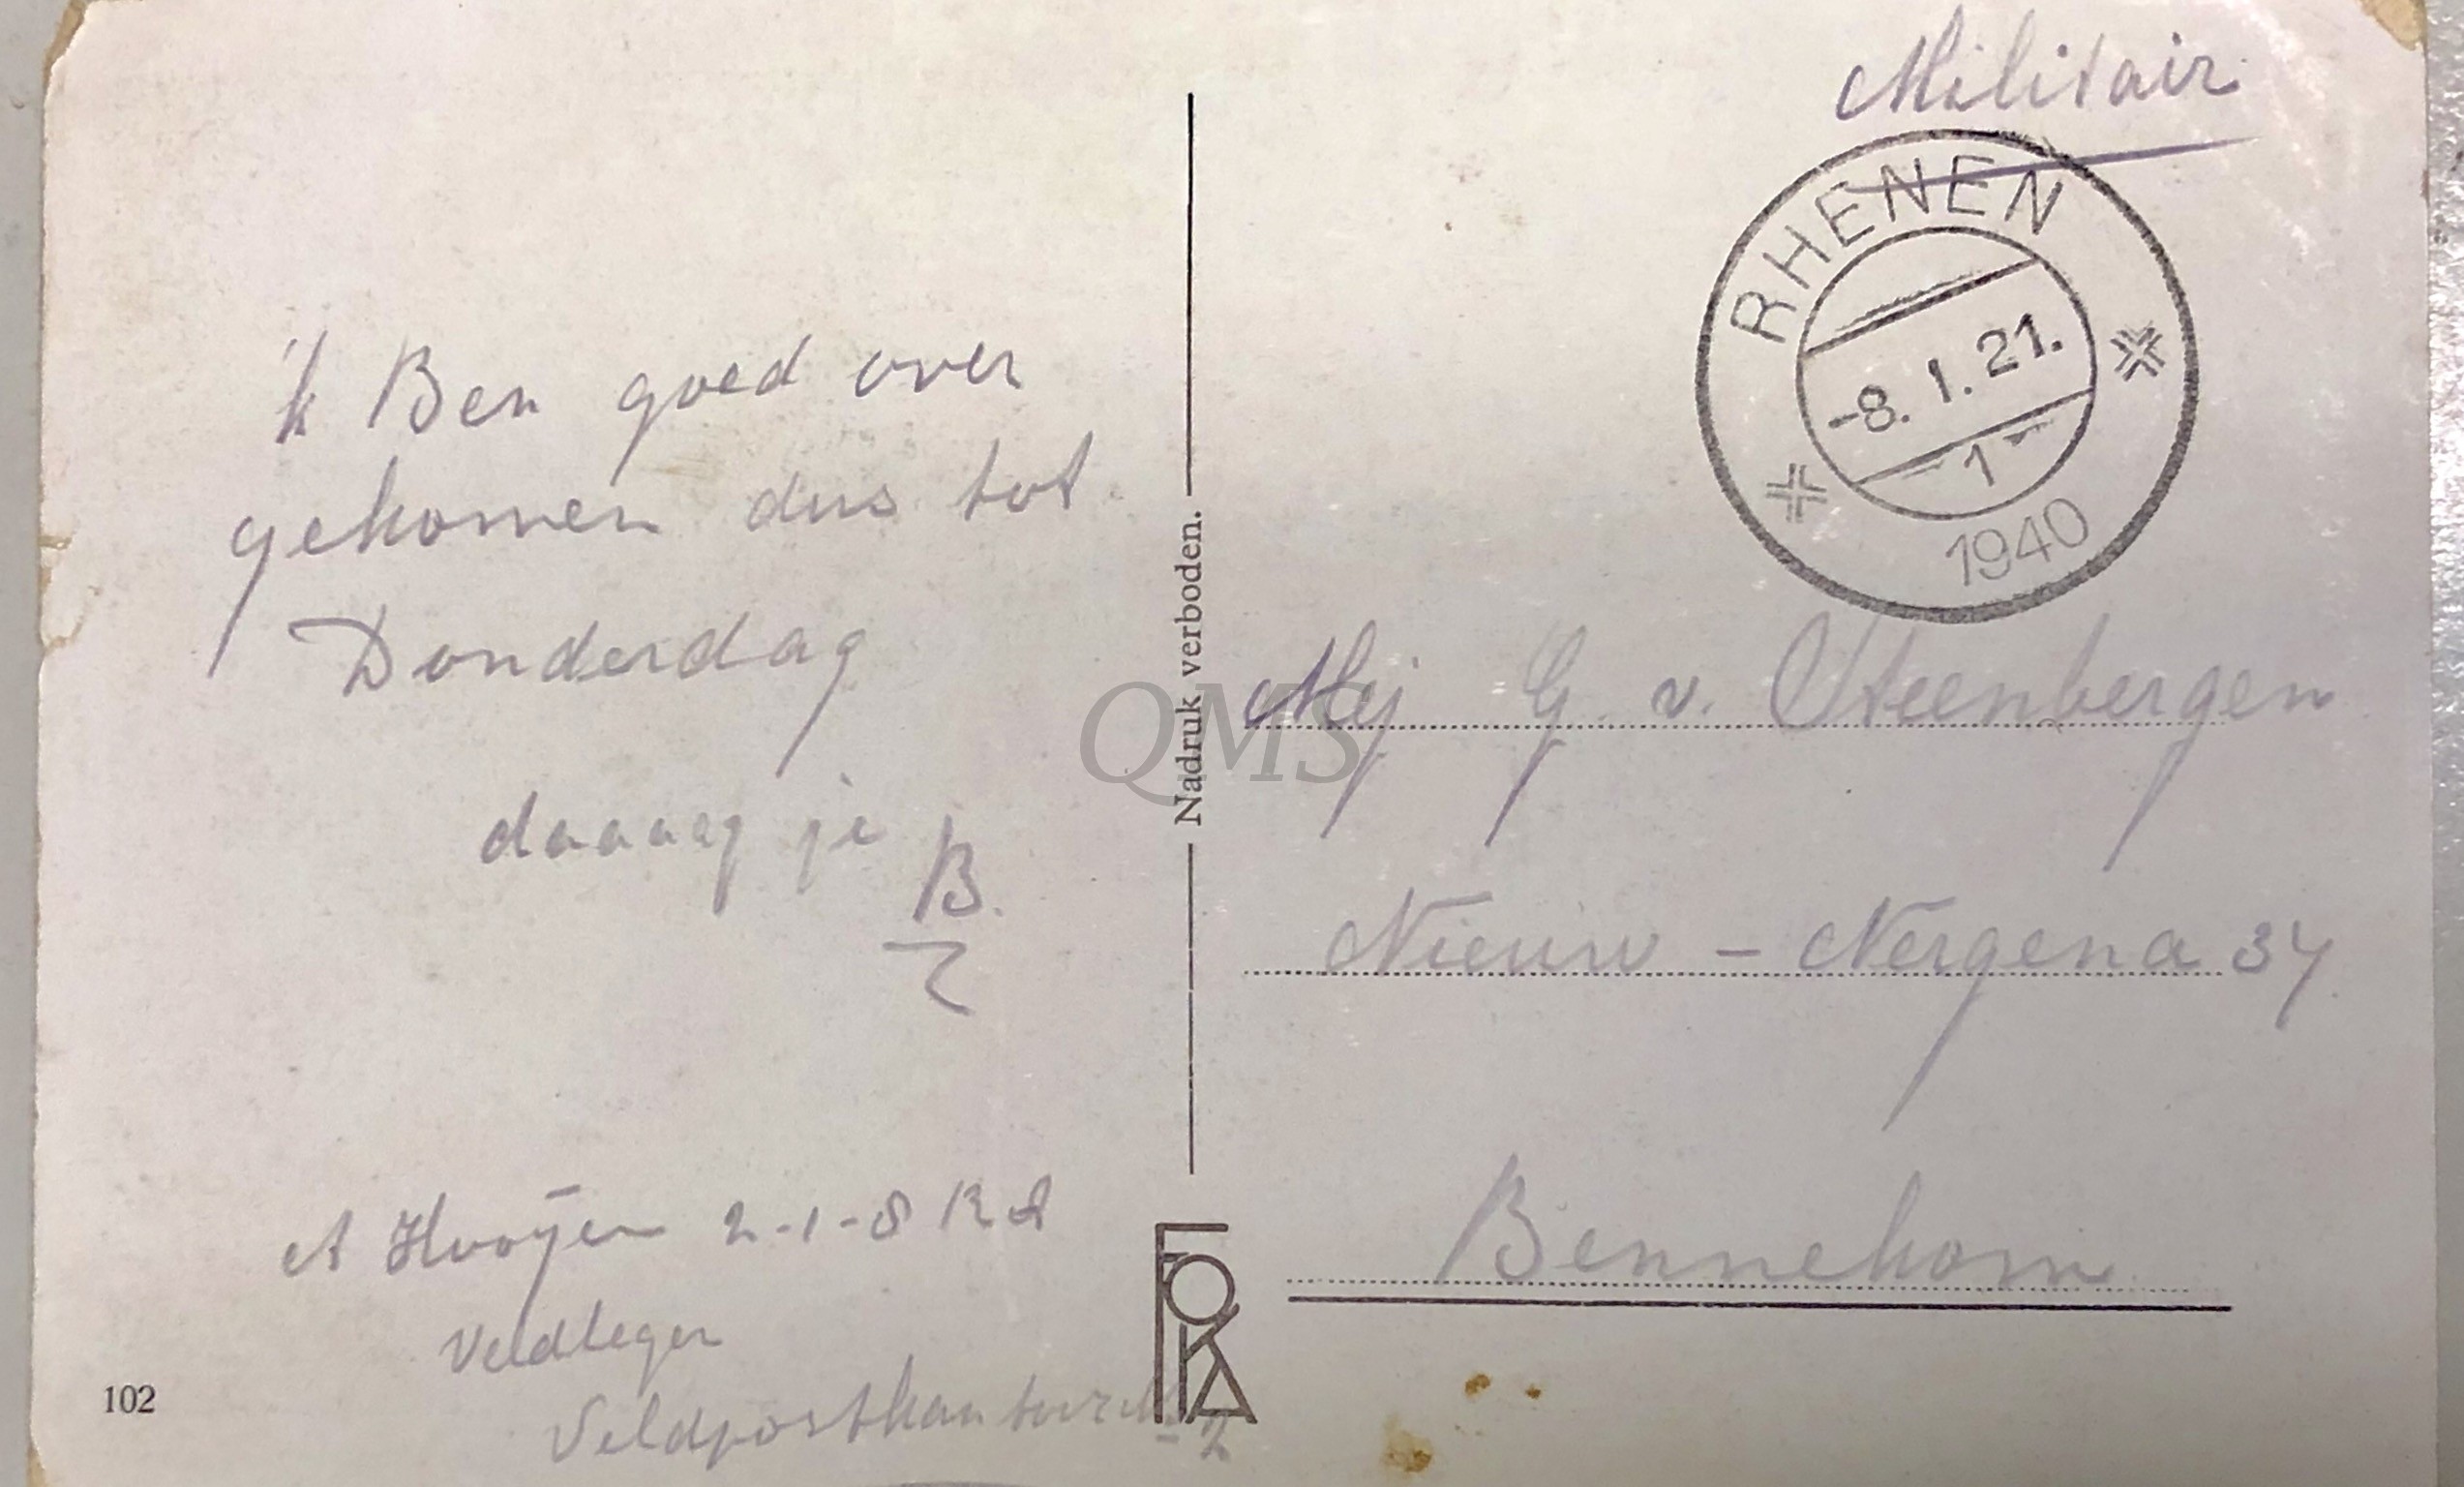 Militair
RHENEN
-8. 1. 21.
1
1940
ik Ben goed over
gekomen dus tot
Donderdag
daaaag je
B.
A Hooijer 2-1-8 RA
Veldleger
Veldpostkantoor No 2
102
Nadruk verboden.
FOKA
QMS
Mej G. v. Steenbergen
Nieuw - Nergena 34
Bennekom